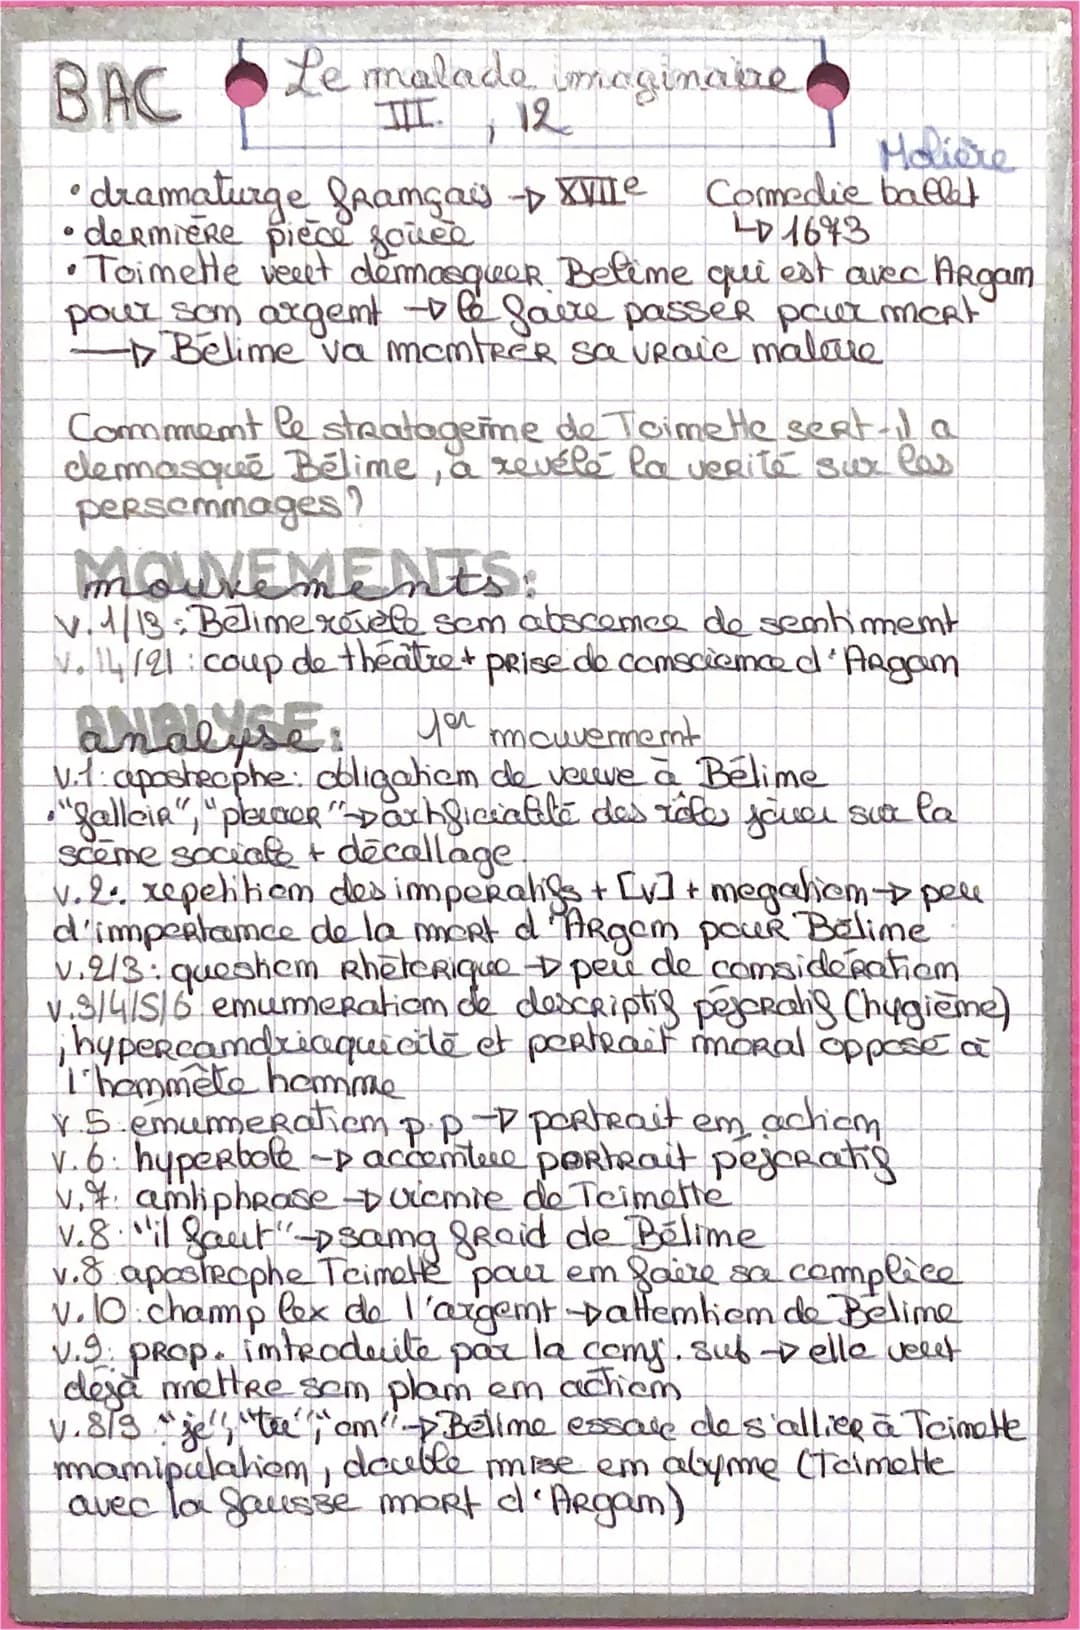 BAC
Le malade imaginaire
III. , 12
Molière
• dramaturge français → XVIIe Comedie ballet
• dernière pièce jouée ↳ 1673
• Toinette veut démasquer Beline qui est avec Argan
pour son argent → le faire passer pour mort
→ Béline va montrer sa vraie nature
Comment le stratageme de Toinette sert-il a
demasqué Béline, a révélé la verité sur les
personnages?
MOUVEMENTS:
mouvements:
v.1/13 : Béline révèle son abscence de sentiment
v.14/21 : coup de théâtre + prise de conscience d'Argan
ANALYSE:
analyse: 1er mouvement
v.1: apostrophe: obligation de veuve à Béline
• "falloir", "pleurer" → artificialité des rôles jouer sur la
scène sociale + décallage.
v.2: repetition des imperatifs + [v] + negation → peu
d'importance de la mort d'Argan pour Béline
v.2/3: question rhétorique → peu de consideration
v.3/4/5/6 enumeration de descriptif péjoratif (hygiène)
, hypercondriaquicité et portrait moral opposé à
l'honnête homme
v.5 enumeration p.p → portrait en action
v.6: hyperbole → accentue portrait pejoratif
v.7: antiphrase → ironie de Toinette
v.8: "il faut" → sang froid de Béline
v.8 apostrophe Toinette pour en faire sa complice
v.10: champ lex de l'argent → attention de Béline
v.9: prop. introduite par la conj. sub → elle veut
déjà mettre son plan en action
v.8/9 "je", "tu", "on" → Béline essaie de s'allier à Toinette
manipulation, double mise en abyme (Toinette
avec la fausse mort d'Argan)